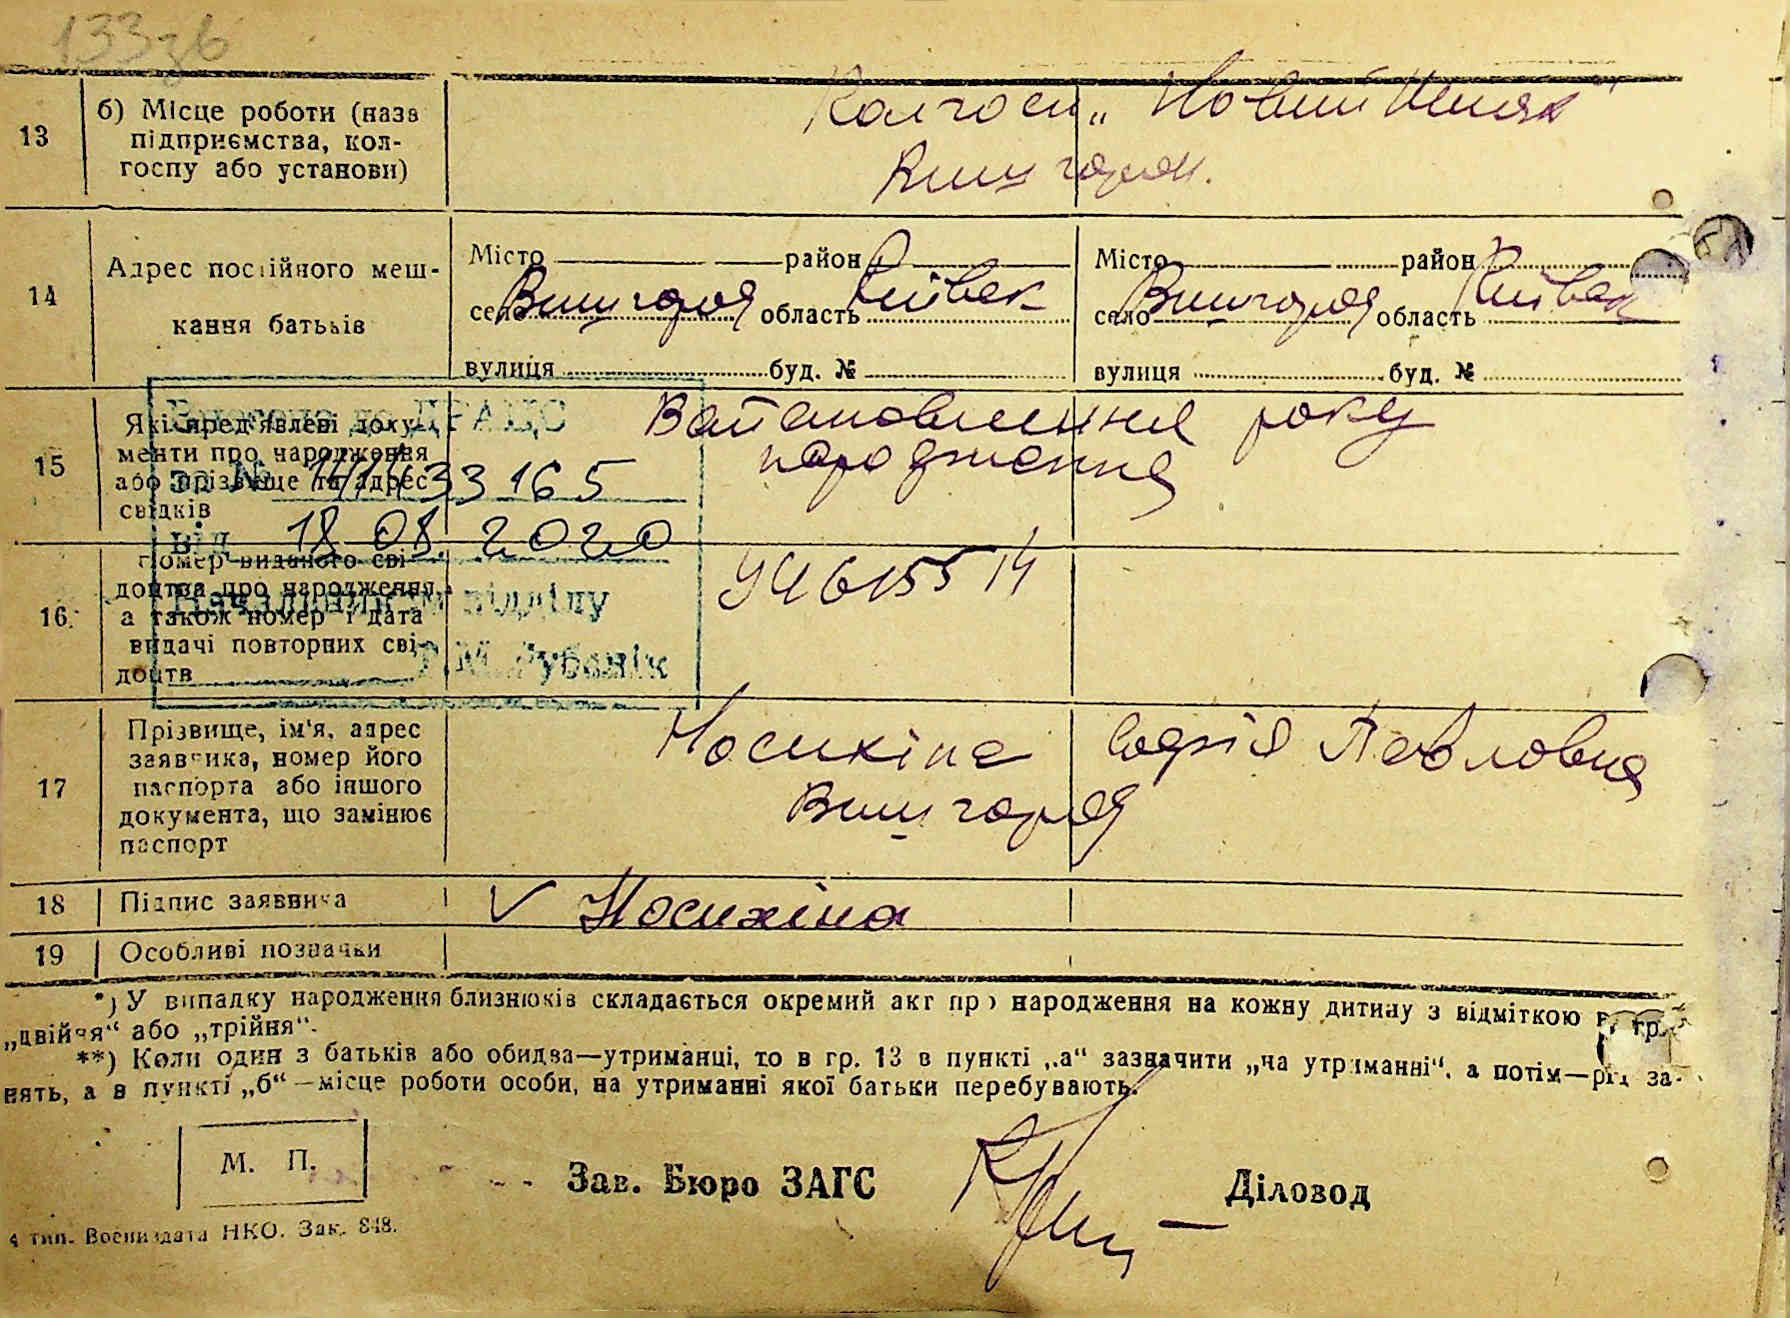 133зв
13
б) Місце роботи (назва
підприємства, кол-
госпу або установи)
Колгосп „Новий Шлях"
Вишгород.
14
Адрес постійного меш-
кання батьків
Місто район
село Вишгород область Київськ
вулиця буд. №
Місто район
село Вишгород область Київськ
вулиця буд. №
15
Які пред'явлені доку-
менти про народження
або прізвище та адрес
свідків
Встановлення року
народження
Внесено до ДРАЦС
за № 165
від 18 08. 2020
Начальником відділу
16.
Номер виданого сві-
доцтва про народження,
а також номер і дата
видачі повторних сві-
доцтв
17
Прізвище, ім'я, адрес
заявника, номер його
паспорта або іншого
документа, що замінює
паспорт
Носикіна Софія Павловна
Вишгород
18
Підпис заявника
V Носикіна
19
Особливі позначки
*) У випадку народження близнюків складається окремий акт про народження на кожну дитину з відміткою в гр.
„двійня" або „трійня".
**) Коли один з батьків або обидва—утриманці, то в гр. 13 в пункті „а" зазначити „на утриманні", а потім—рід за-
нять, а в пункті „б"—місце роботи особи, на утриманні якої батьки перебувають.
М. П.
Зав. Бюро ЗАГС
Діловод
4 тип. Воениздата НКО. Зак. 848.